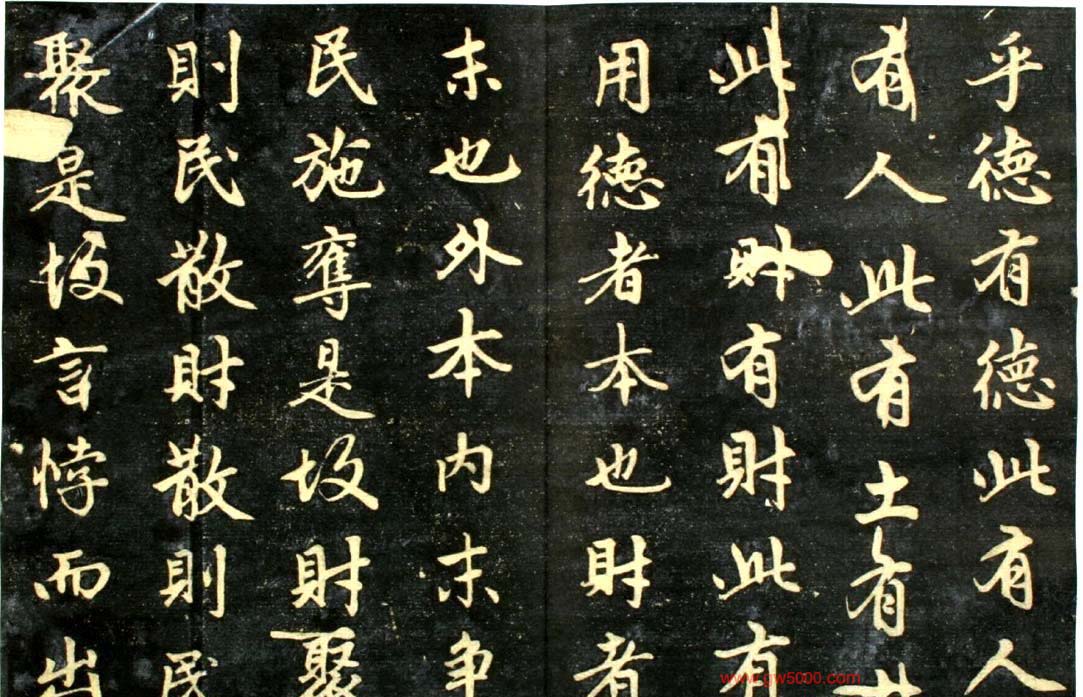 乎德有德此有人
有人此有土有
此有財有財此有
用德者本也財者
末也外本内末争
民施奪是故財聚
則民散財散則民
聚是故言悖而出
www.gw5000.com